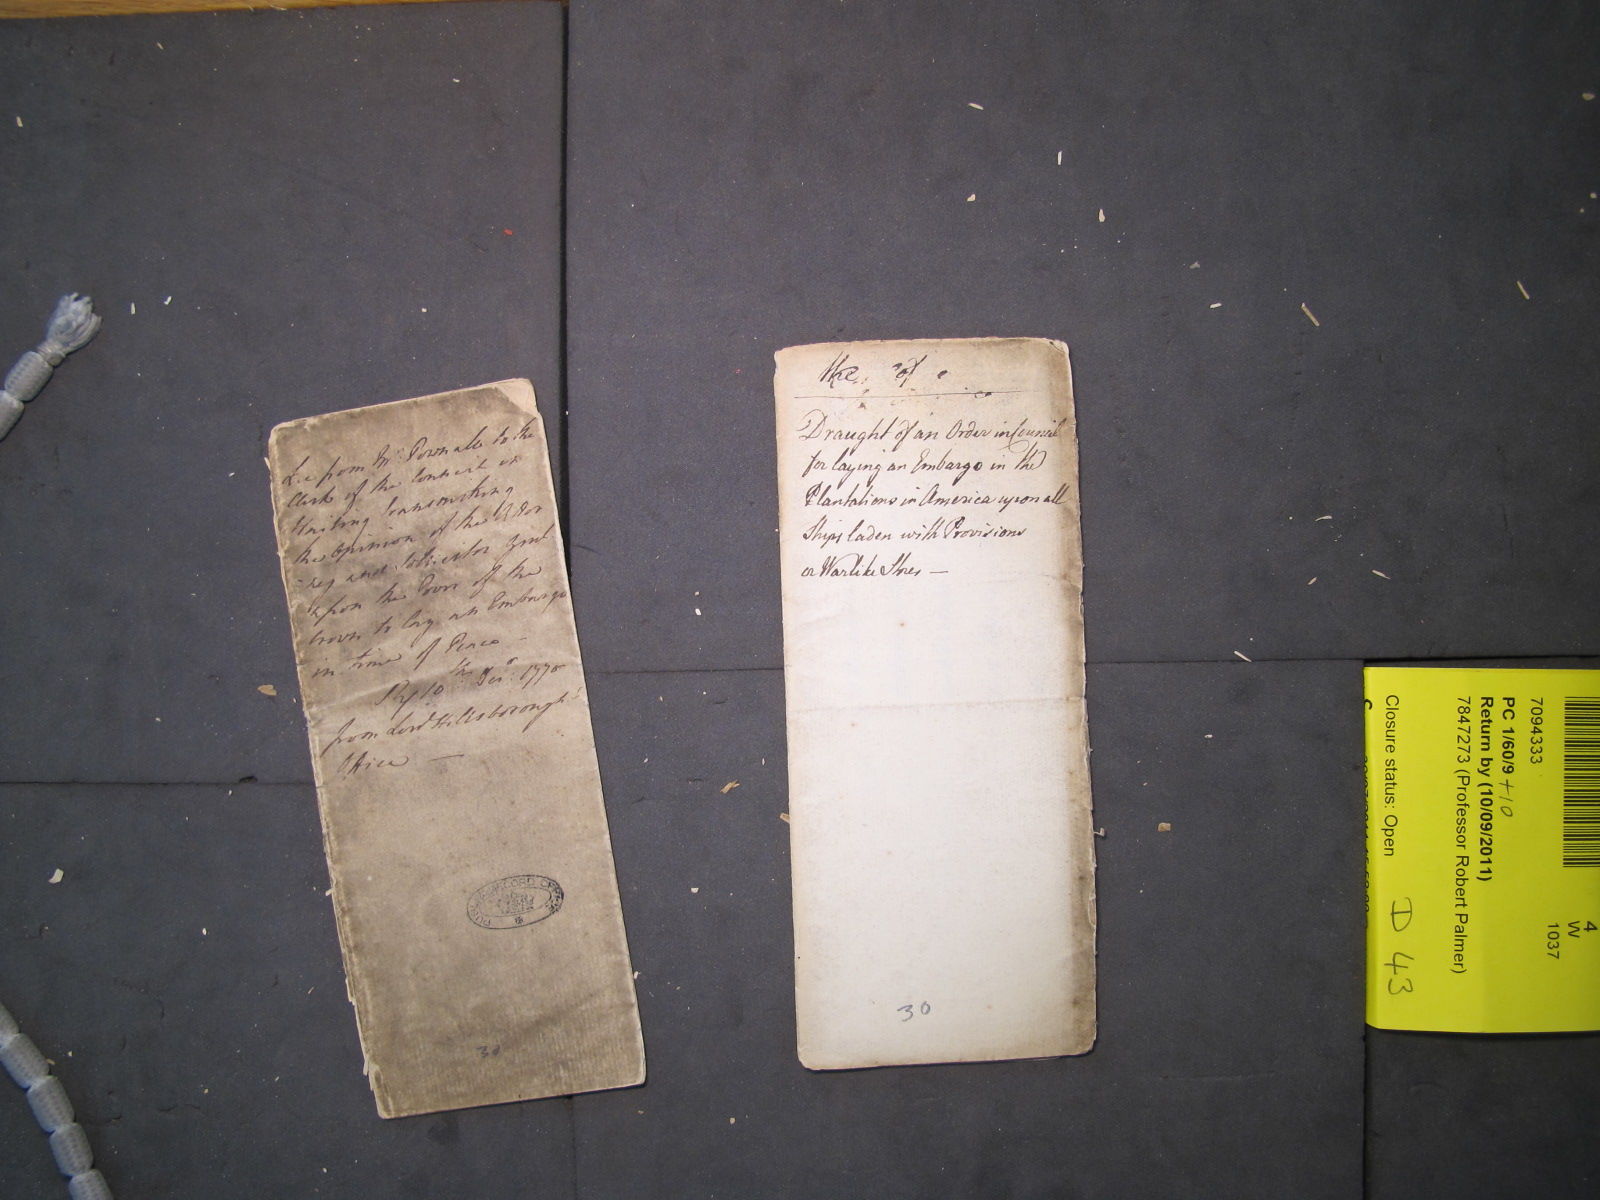 Lre from Mr. Pownall to the
Clerk of the Council in
Waiting transmitting
the Opinion of the Attor
-ney and Sollicitor Genl
upon the Power of the
Crown to lay an Embargo
in time of Peace -
10th Decr. 1770
from Lord Hillsborough's
Office —
PUBLIC RECORD OFFICE
30
the of
Draught of an Order in Council
for laying an Embargo in the
Plantations in America upon all
Ships laden with Provisions
or Warlike Stores —
30
4
W
1037
7094333
PC 1/60/9 +10
Return by (10/09/2011)
7847273 (Professor Robert Palmer)
Closure status: Open
D 43